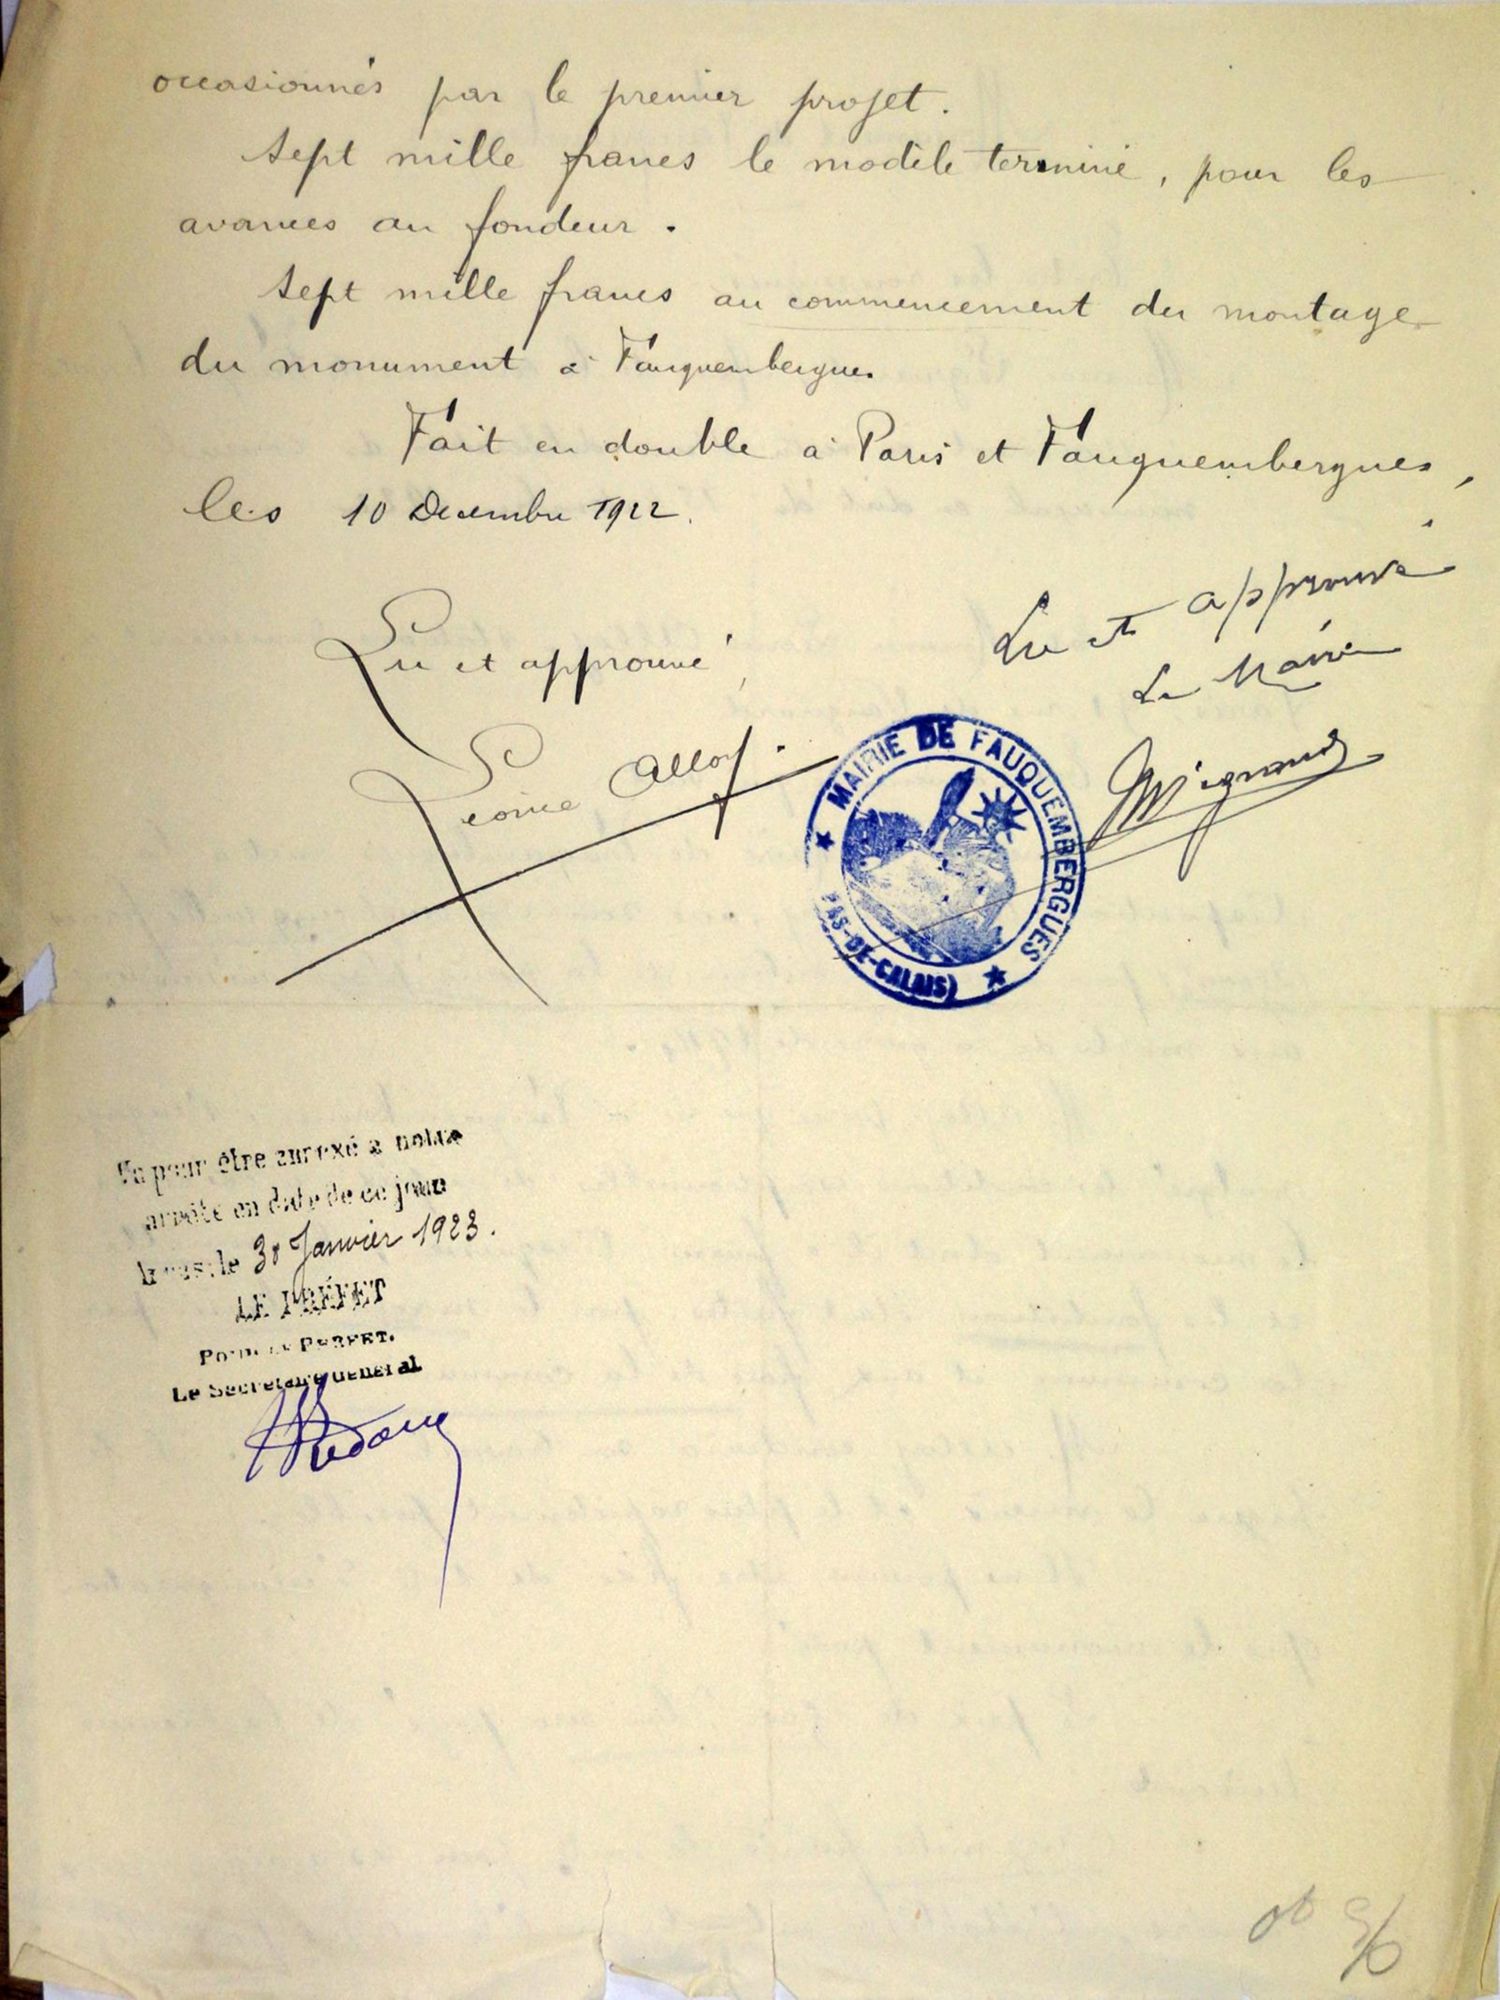 occasionnés par le premier projet.
Sept mille francs le modèle terminé, pour les
avances au fondeur.
Sept mille francs au commencement du montage
du monument à Fauquembergues.
Fait en double à Paris et Fauquembergues,
les 10 Decembre 1922.
Lu et approuvé
Lu et approuvé,
Le Maire
Léonce Alloy.
MAIRIE DE FAUQUEMBERGUES
(PAS-DE-CALAIS)
Vu pour être annexé à notre
arrêté en date de ce jour
Arras, le 30 Janvier 1923.
LE PRÉFET
POUR LE PRÉFET.
Le Secrétaire Général